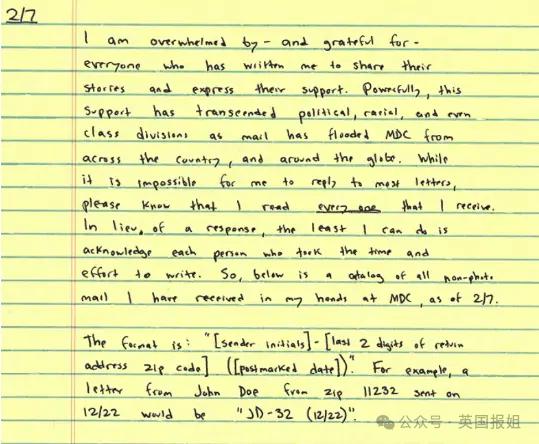 2/7
I am overwhelmed by - and grateful for -
everyone who has written me to share their
stories and express their support. Powerfully, this
support has transcended political, racial, and even
class divisions as mail has flooded MDC from
across the country, and around the globe. While
it is impossible for me to reply to most letters,
please know that I read every one that I receive.
In lieu of a response, the least I can do is
acknowledge each person who took the time and
effort to write. So, below is a catalog of all non-photo
mail I have received in my hands at MDC, as of 2/7.
The format is: "[sender initials]-[last 2 digits of return
address zip code] ([postmarked date])". For example, a
letter from John Doe from zip 11232 sent on
12/22 would be "JD-32 (12/22)".
公众号·英国报姐